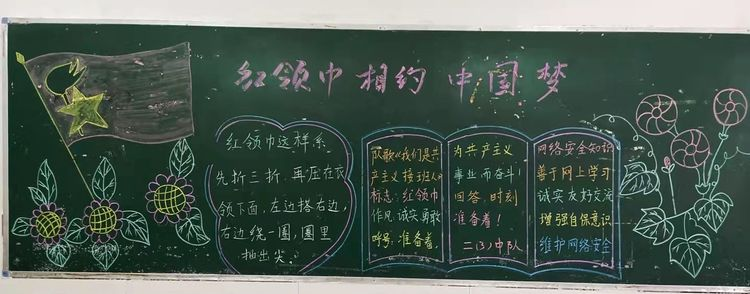 红领巾相约中国梦
红领巾这样系
先折三折,再压在衣
领下面,左边搭右边,
右边绕一圈,圈里
抽出尖。
队歌《我们是共
产主义接班人》
标志:红领巾
作风:诚实勇敢
呼号:准备着,
为共产主义
事业而奋斗!
回答:时刻
准备着!
二(3)中队
网络安全知识
善于网上学习
诚实友好交流
增强自保意识
维护网络安全